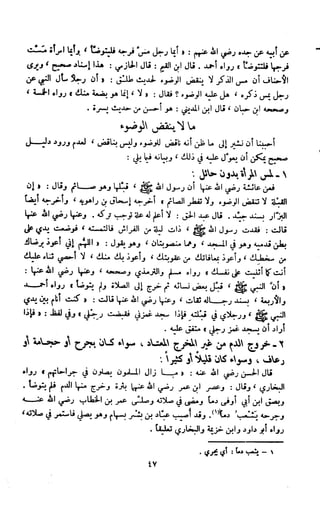 عن أبيه عن جده رضي الله عنهم : « أيما رجل مسّ فرجه فليتوضأ ، وأيما امرأة مسّت
فرجها فلتتوضأ » رواه أحمد . قال ابن القيم : قال الحازمي : هذا إسناد صحيح ، ويرى
الأحناف أن مس الذكر لا ينقض الوضوء لحديث طلق : « أن رجلًا سأل النبي عن
رجل يمس ذكره ، هل عليه الوضوء ؟ فقال : « لا ، إنما هو بضعة منك » رواه الخمسة ،
وصححه ابن حبان ، قال ابن المديني : هو أحسن من حديث بسرة .
ما لا ينقض الوضوء
أحببنا أن نشير إلى ما ظن أنه ناقض للوضوء وليس بناقض ، لعدم ورود دليل
صحيح يمكن أن يعول عليه في ذلك ، وبيانه فيما يلي :
١ - لمس المرأة بدون حائل :
فعن عائشة رضي الله عنها أن رسول الله ﷺ قبلها وهو صائم وقال : « إن
القبلة لا تنقض الوضوء ولا تفطر الصائم » أخرجه إسحاق بن راهويه ، وأخرجه أيضا
البزار بسند جيد . قال عبد الحق : لا أعلم له علة توجب تركه . وعنها رضي الله عنها
قالت : فقدت رسول الله ﷺ ذات ليلة من الفراش فالتمسته ، فوضعت يدي على
بطن قدميه وهو في المسجد ، وهما منصوبتان ، وهو يقول : « اللهم إني أعوذ برضاك
من سخطك ، وأعوذ بمعافاتك من عقوبتك ، وأعوذ بك منك ، لا أحصي ثناء عليك
أنت كما أثنيت على نفسك » رواه مسلم والترمذي وصححه ، وعنها رضي الله عنها :
« أن النبي ﷺ قبل بعض نسائه ثم خرج إلى الصلاة ولم يتوضأ » رواه أحمد
والأربعة ، بسند رجاله ثقات ، وعنها رضي الله عنها قالت : « كنت أنام بين يدي
النبي ﷺ ورجلاي في قبلته فإذا سجد غمزني فقبضت رجلي » وفي لفظ : « فإذا
أراد أن يسجد غمز رجلي » متفق عليه .
٢ - خروج الدم من غير المخرج المعتاد ، سواء كان بجرح أو حجامة أو
رعاف ، وسواء كان قليلًا أو كثيرًا :
قال الحسن رضي الله عنه : « ما زال المسلمون يصلون في جراحاتهم » رواه
البخاري ، وقال : وعصر ابن عمر رضي الله عنهما بثرة وخرج منها الدم فلم يتوضأ .
وبصق ابن أبي أوفى دما ومضى في صلاته ، وصلى عمر بن الخطاب رضي الله عنه
وجرحه يثعب دما (١) . وقد أصيب عباد بن بشر بسهام وهو يصلي فاستمر في صلاته »
رواه أبو داود وابن خزيمة والبخاري تعليقا .
١ - يثعب دما : أي يجري .
٤٧